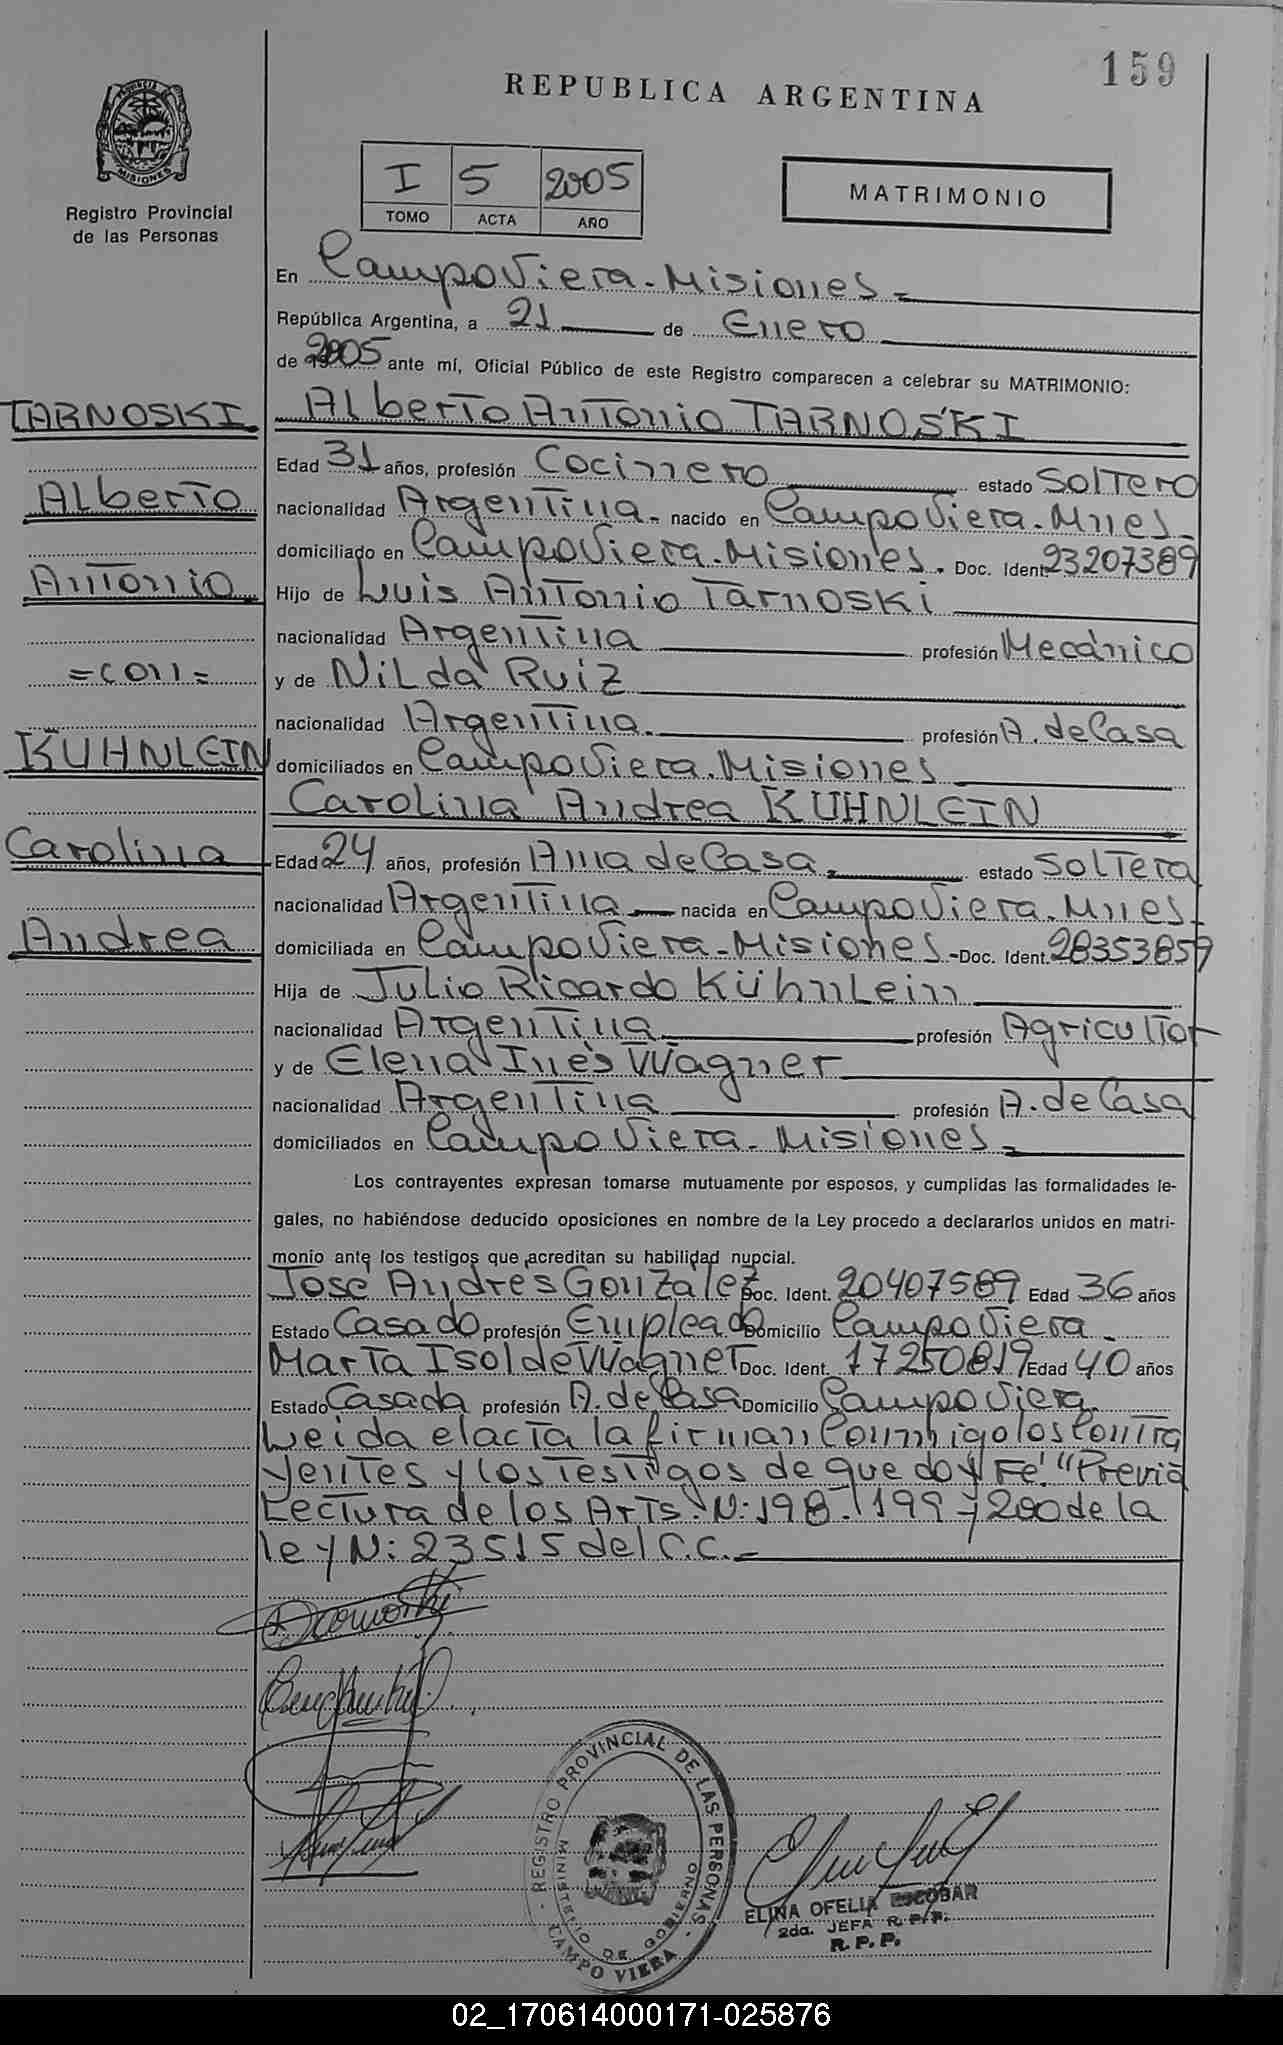 159
REPUBLICA ARGENTINA
PROVINCIA DE MISIONES
Registro Provincial
de las Personas
I 5 2005
TOMO ACTA AÑO
MATRIMONIO
En Campo Viera - Misiones -
República Argentina, a 21 de Enero
de 2005 ante mí, Oficial Público de este Registro comparecen a celebrar su MATRIMONIO:
TARNOSKI
Alberto
Antonio
= con =
KÜHNLEIN
Carolina
Andrea
Alberto Antonio TARNOSKI
Edad 31 años, profesión Cocinero estado Soltero
nacionalidad Argentina. nacido en Campo Viera. Mnes.
domiciliado en Campo Viera. Misiones. Doc. Ident. 23207389
Hijo de Luis Antonio Tarnoski
nacionalidad Argentina profesión Mecánico
y de Nilda Ruiz
nacionalidad Argentina. profesión A. de Casa
domiciliados en Campo Viera. Misiones
Carolina Andrea KÜHNLEIN
Edad 24 años, profesión Ama de Casa. estado Soltera
nacionalidad Argentina nacida en Campo Viera. Mnes.
domiciliada en Campo Viera - Misiones - Doc. Ident. 28353859
Hija de Julio Ricardo Kühnlein
nacionalidad Argentina profesión Agricultor
y de Elena Inés Wagner
nacionalidad Argentina profesión A. de Casa
domiciliados en Campo Viera - Misiones -
Los contrayentes expresan tomarse mutuamente por esposos, y cumplidas las formalidades le-
gales, no habiéndose deducido oposiciones en nombre de la Ley procedo a declararlos unidos en matri-
monio ante los testigos que acreditan su habilidad nupcial.
José Andrés Gonzalez Doc. Ident. 20407589 Edad 36 años
Estado Casado profesión Empleado Domicilio Campo Viera -
Marta Isolde Wagner Doc. Ident. 17250819 Edad 40 años
Estado Casada profesión A. de Casa Domicilio Campo Viera.
Leida el acta la firman Conmigo los Contra
yentes y los Testigos de que doy Fe. "Previa
Lectura de los Arts. N: 198. 199 y 200 de la
ley N: 23515 del C.C. -
REGISTRO PROVINCIAL DE LAS PERSONAS
MINISTERIO DE GOBIERNO
CAMPO VIERA
ELINA OFELIA ESCOBAR
2da. JEFA R. P. P.
R. P. P.
02_170614000171-025876